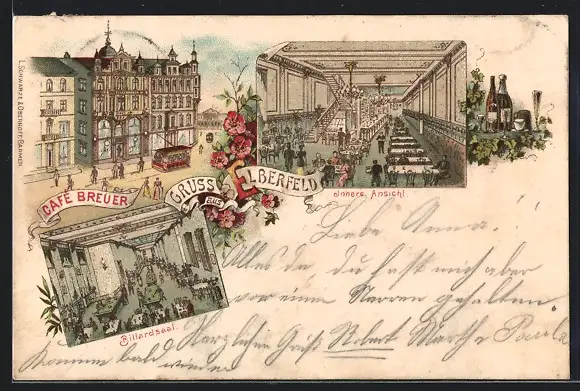 L. SCHWARZE & OBERHOFF, BARMEN.
CAFÉ BREUER
GRUSS AUS ELBERFELD
Innere Ansicht
Billardsaal.
Liebe Anna!
Alles da, du hast mich aber
vor einen Narren gehalten.
Herzlichen Gruß Robert Marth Paula
Komme bald wieder